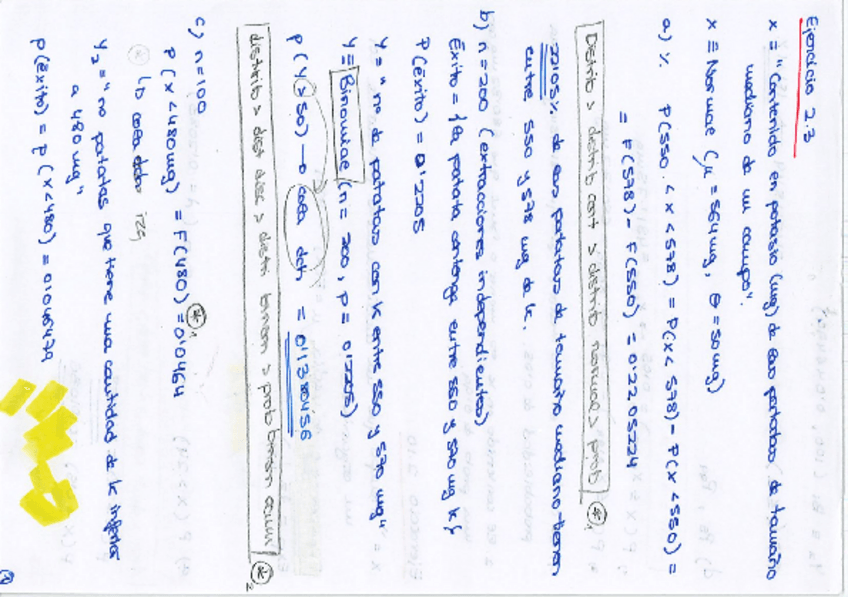 Ejercicio 2.3
x ≡ "Contenido en potasio (mg) de las patatas de tamaño
mediano de un campo".
x ≡ Normal (μ = 564mg, σ = 50 mg)
a) %. P(550 < x < 578) = P(x < 578) - P(x < 550) =
= F(578) - F(550) = 0'2205224
Distrib > distrib cont > distrib normal > prob *1
22'05% de las patatas de tamaño mediano tienen
entre 550 y 578 mg de k.
b) n = 200 (extracciones independientes)
Éxito = {la patata contenga entre 550 y 578 mg k}
P(éxito) = 0'2205
y = "nº de patatas con k entre 550 y 578 mg"
y ≡ Binomial (n = 200, p = 0'2205)
P(y > 50) → cola dch = 0'1380456
distrib > dist disc > distri binom > prob binom acum *2
c) n = 100
P(x < 480mg) = F(480) = 0'0464 *1
* ↳ cola izq
y2 = "nº patatas que tiene una cantidad de k inferior
a 480 mg"
p(éxito) = p(x < 480) = 0'046479